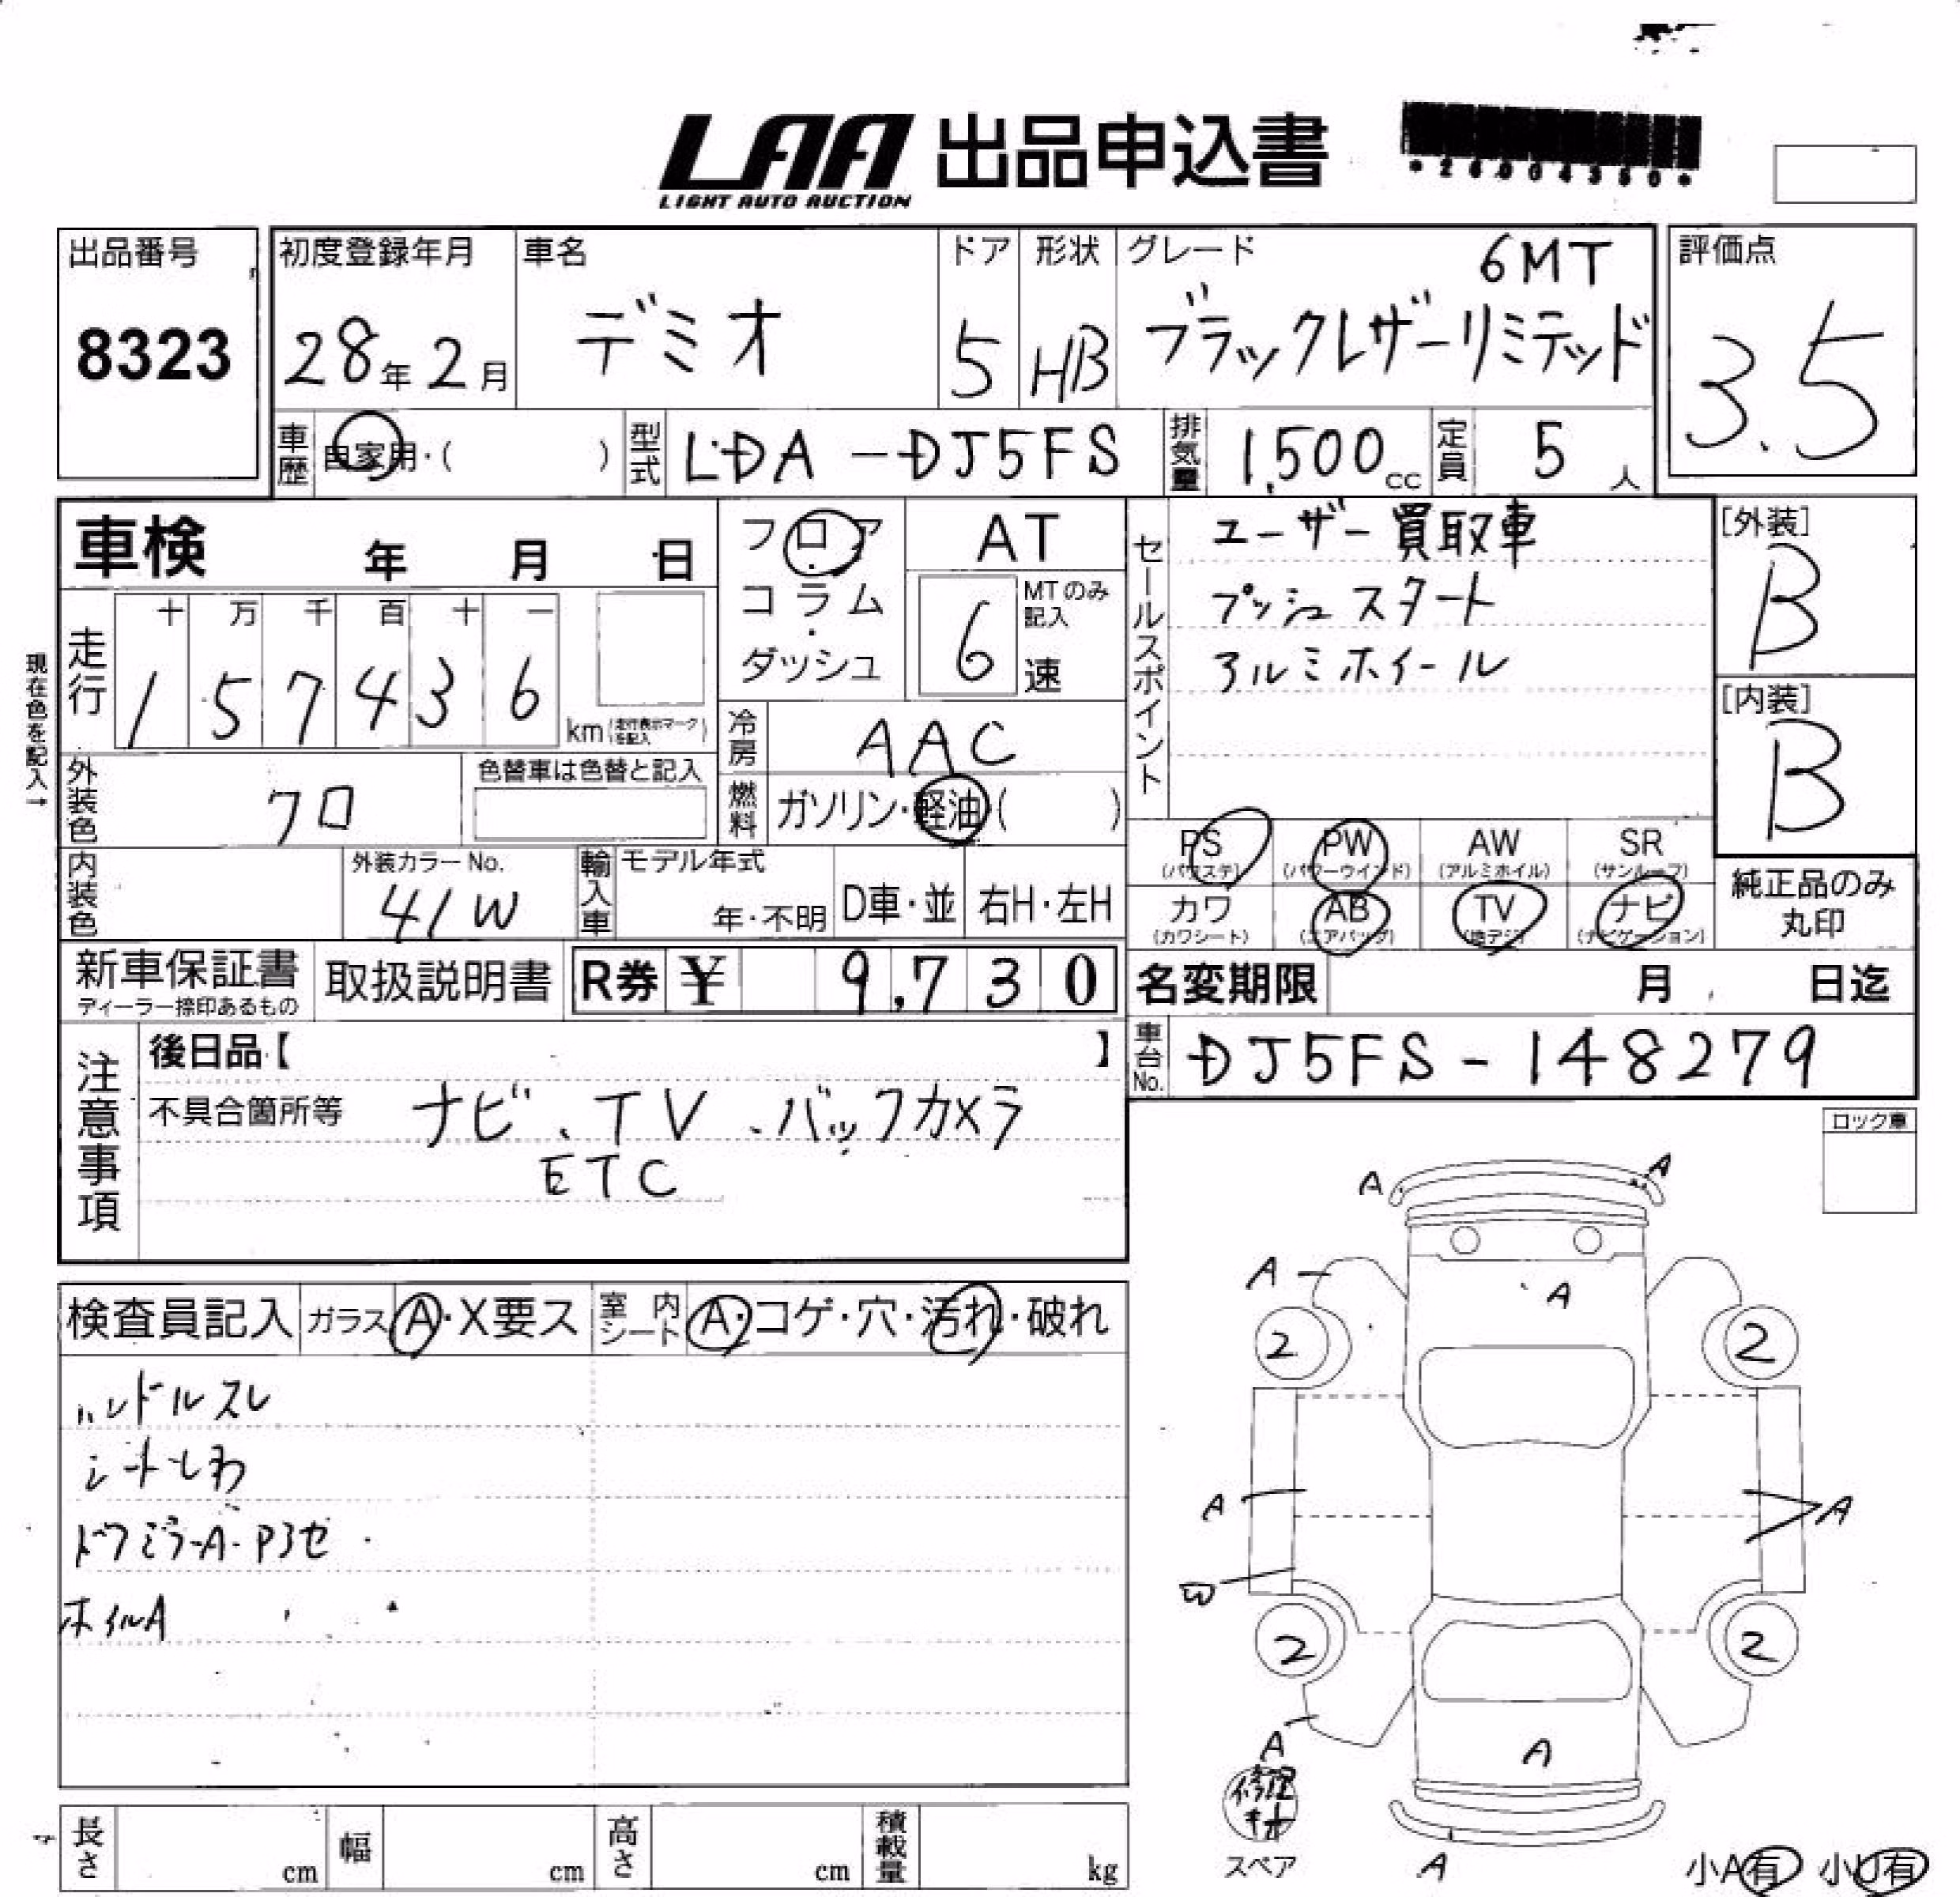 LAA 出品申込書
LIGHT AUTO AUCTION
出品番号
8323
初度登録年月
28年2月
車名
デミオ
ドア
5
形状
HB
グレード
6MT
ブラックレザーリミテッド
評価点
3.5
車歴
自家用・( )
型式
LDA-DJ5FS
排気量
1,500cc
定員
5人
車検 年 月 日
フロア・コラム・ダッシュ
AT
6
MTのみ記入
速
セールスポイント
ユーザー買取車
プッシュスタート
アルミホイール
[外装]
B
[内装]
B
現在色を記入→
走行
十 万 千 百 十 一
1 5 7 4 3 6
km(走行表示マークを記入)
冷房
AAC
外装色
クロ
色替車は色替と記入
燃料
ガソリン・軽油( )
PS
(パワステ)
PW
(パワーウインド)
AW
(アルミホイル)
SR
(サンルーフ)
カワ
(カワシート)
AB
(エアバッグ)
TV
(地デジ)
ナビ
(ナビゲーション)
純正品のみ
丸印
内装色
外装カラーNo.
41W
輸入車
モデル年式
年・不明
D車・並
右H・左H
新車保証書
ディーラー捺印あるもの
取扱説明書
R券 ¥ 9,730
名変期限 月 日迄
車台No.
DJ5FS-148279
注意事項
後日品【 】
不具合箇所等 ナビ、TV、バックカメラ
ETC
ロック車
検査員記入
ガラス A・X要ス
室内シート A・コゲ・穴・汚れ・破れ
ハンドルスレ
シートしわ
ドアミラーA・Pハゼ
ホイルA
A A
A
A
2 2
A A
W
2 2
A
A
修理キット
スペア
A
小A有 小U有
長さ cm
幅 cm
高さ cm
積載量 kg